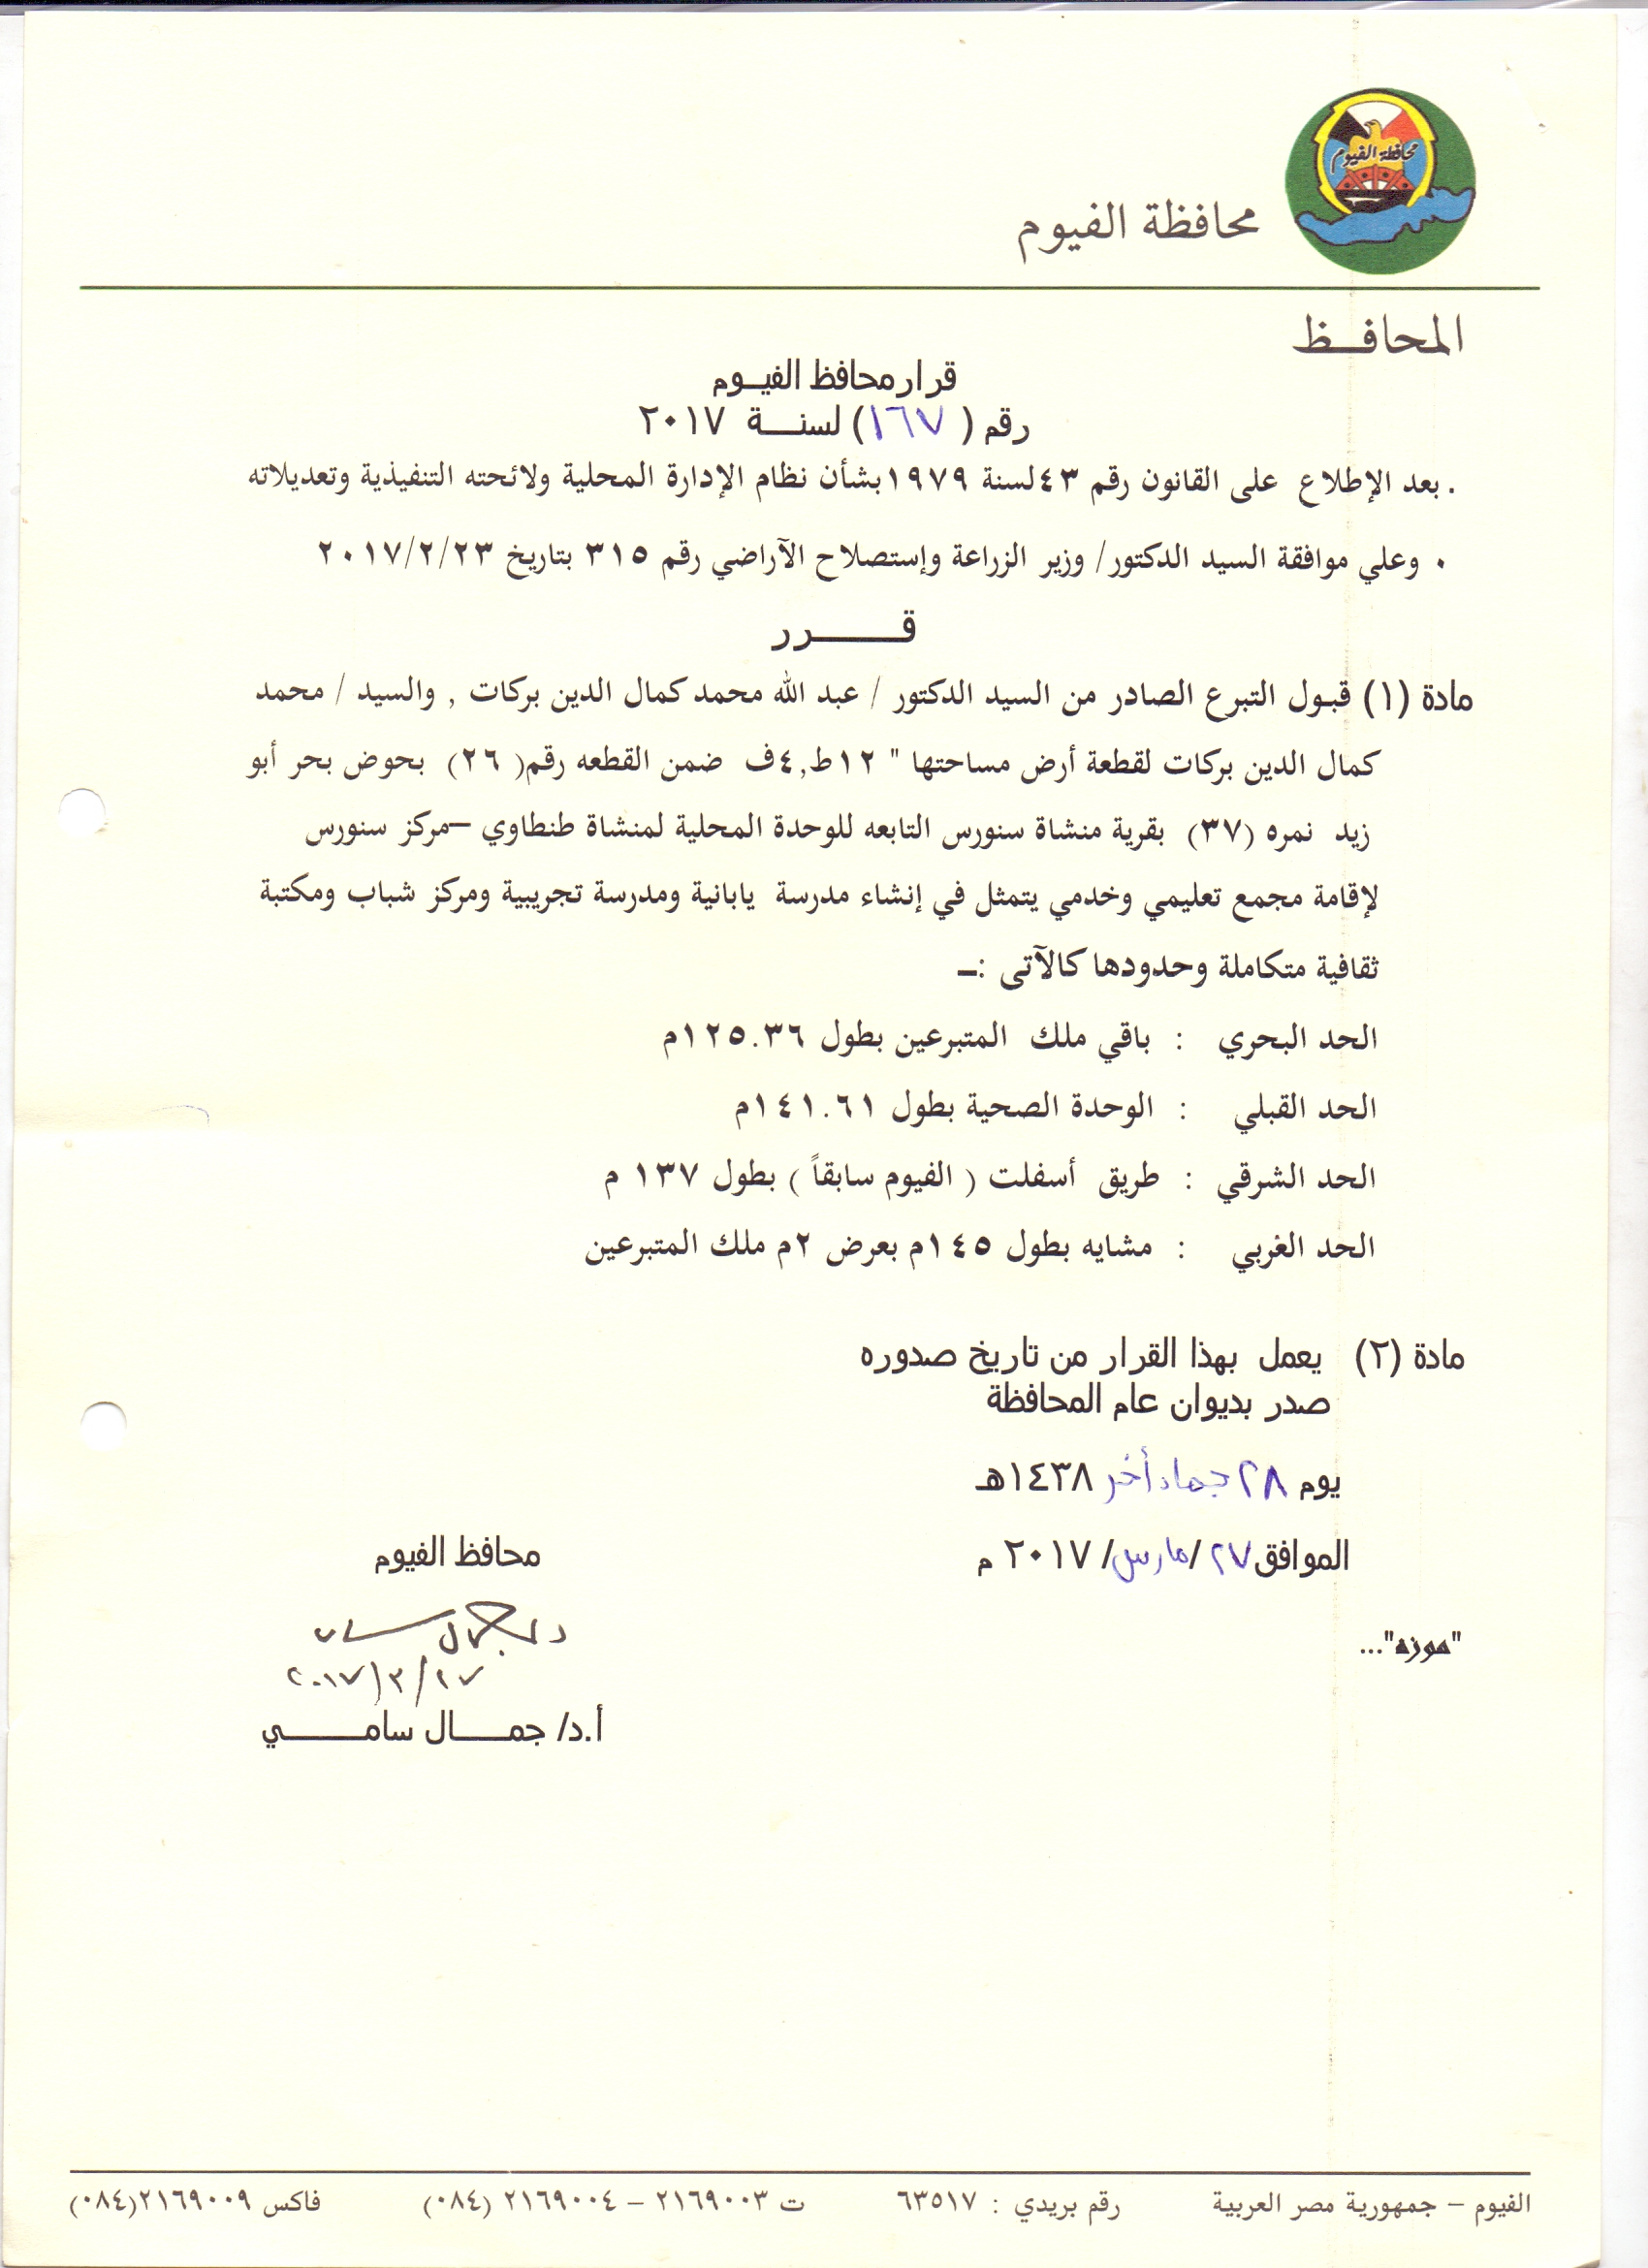 محافظة الفيوم
محافظة الفيوم
المحافــظ
قرار محافظ الفيــوم
رقم ( ١٦٧ ) لسنــــة ٢٠١٧
. بعد الإطلاع على القانون رقم ٤٣ لسنة ١٩٧٩ بشأن نظام الإدارة المحلية ولائحته التنفيذية وتعديلاته
٠ وعلي موافقة السيد الدكتور/ وزير الزراعة وإستصلاح الآراضي رقم ٣١٥ بتاريخ ٢٠١٧/٢/٢٣
قــــــــرر
مادة (١) قبول التبرع الصادر من السيد الدكتور / عبد الله محمد كمال الدين بركات , والسيد / محمد
كمال الدين بركات لقطعة أرض مساحتها " ١٢ط,٤ف ضمن القطعه رقم( ٢٦) بحوض بحر أبو
زيد نمره (٣٧) بقرية منشاة سنورس التابعه للوحدة المحلية لمنشاة طنطاوي –مركز سنورس
لإقامة مجمع تعليمي وخدمي يتمثل في إنشاء مدرسة يابانية ومدرسة تجريبية ومركز شباب ومكتبة
ثقافية متكاملة وحدودها كالآتى :ـ
الحد البحري : باقي ملك المتبرعين بطول ١٢٥.٣٦م
الحد القبلي : الوحدة الصحية بطول ١٤١.٦١م
الحد الشرقي : طريق أسفلت ( الفيوم سابقاً ) بطول ١٣٧ م
الحد الغربي : مشايه بطول ١٤٥م بعرض ٢م ملك المتبرعين
مادة (٢) يعمل بهذا القرار من تاريخ صدوره
صدر بديوان عام المحافظة
يوم ٢٨ جماد أخر ١٤٣٨هـ
الموافق ٢٧ /مارس/ ٢٠١٧ م
محافظ الفيوم
د. جمال سامى
٢٠١٧/٣/٢٧
أ.د/ جمــــال سامــــــــي
"موزه"...
الفيوم – جمهورية مصر العربية رقم بريدي : ٦٣٥١٧ ت ٢١٦٩٠٠٣ – ٢١٦٩٠٠٤ (٠٨٤) فاكس ٢١٦٩٠٠٩(٠٨٤)